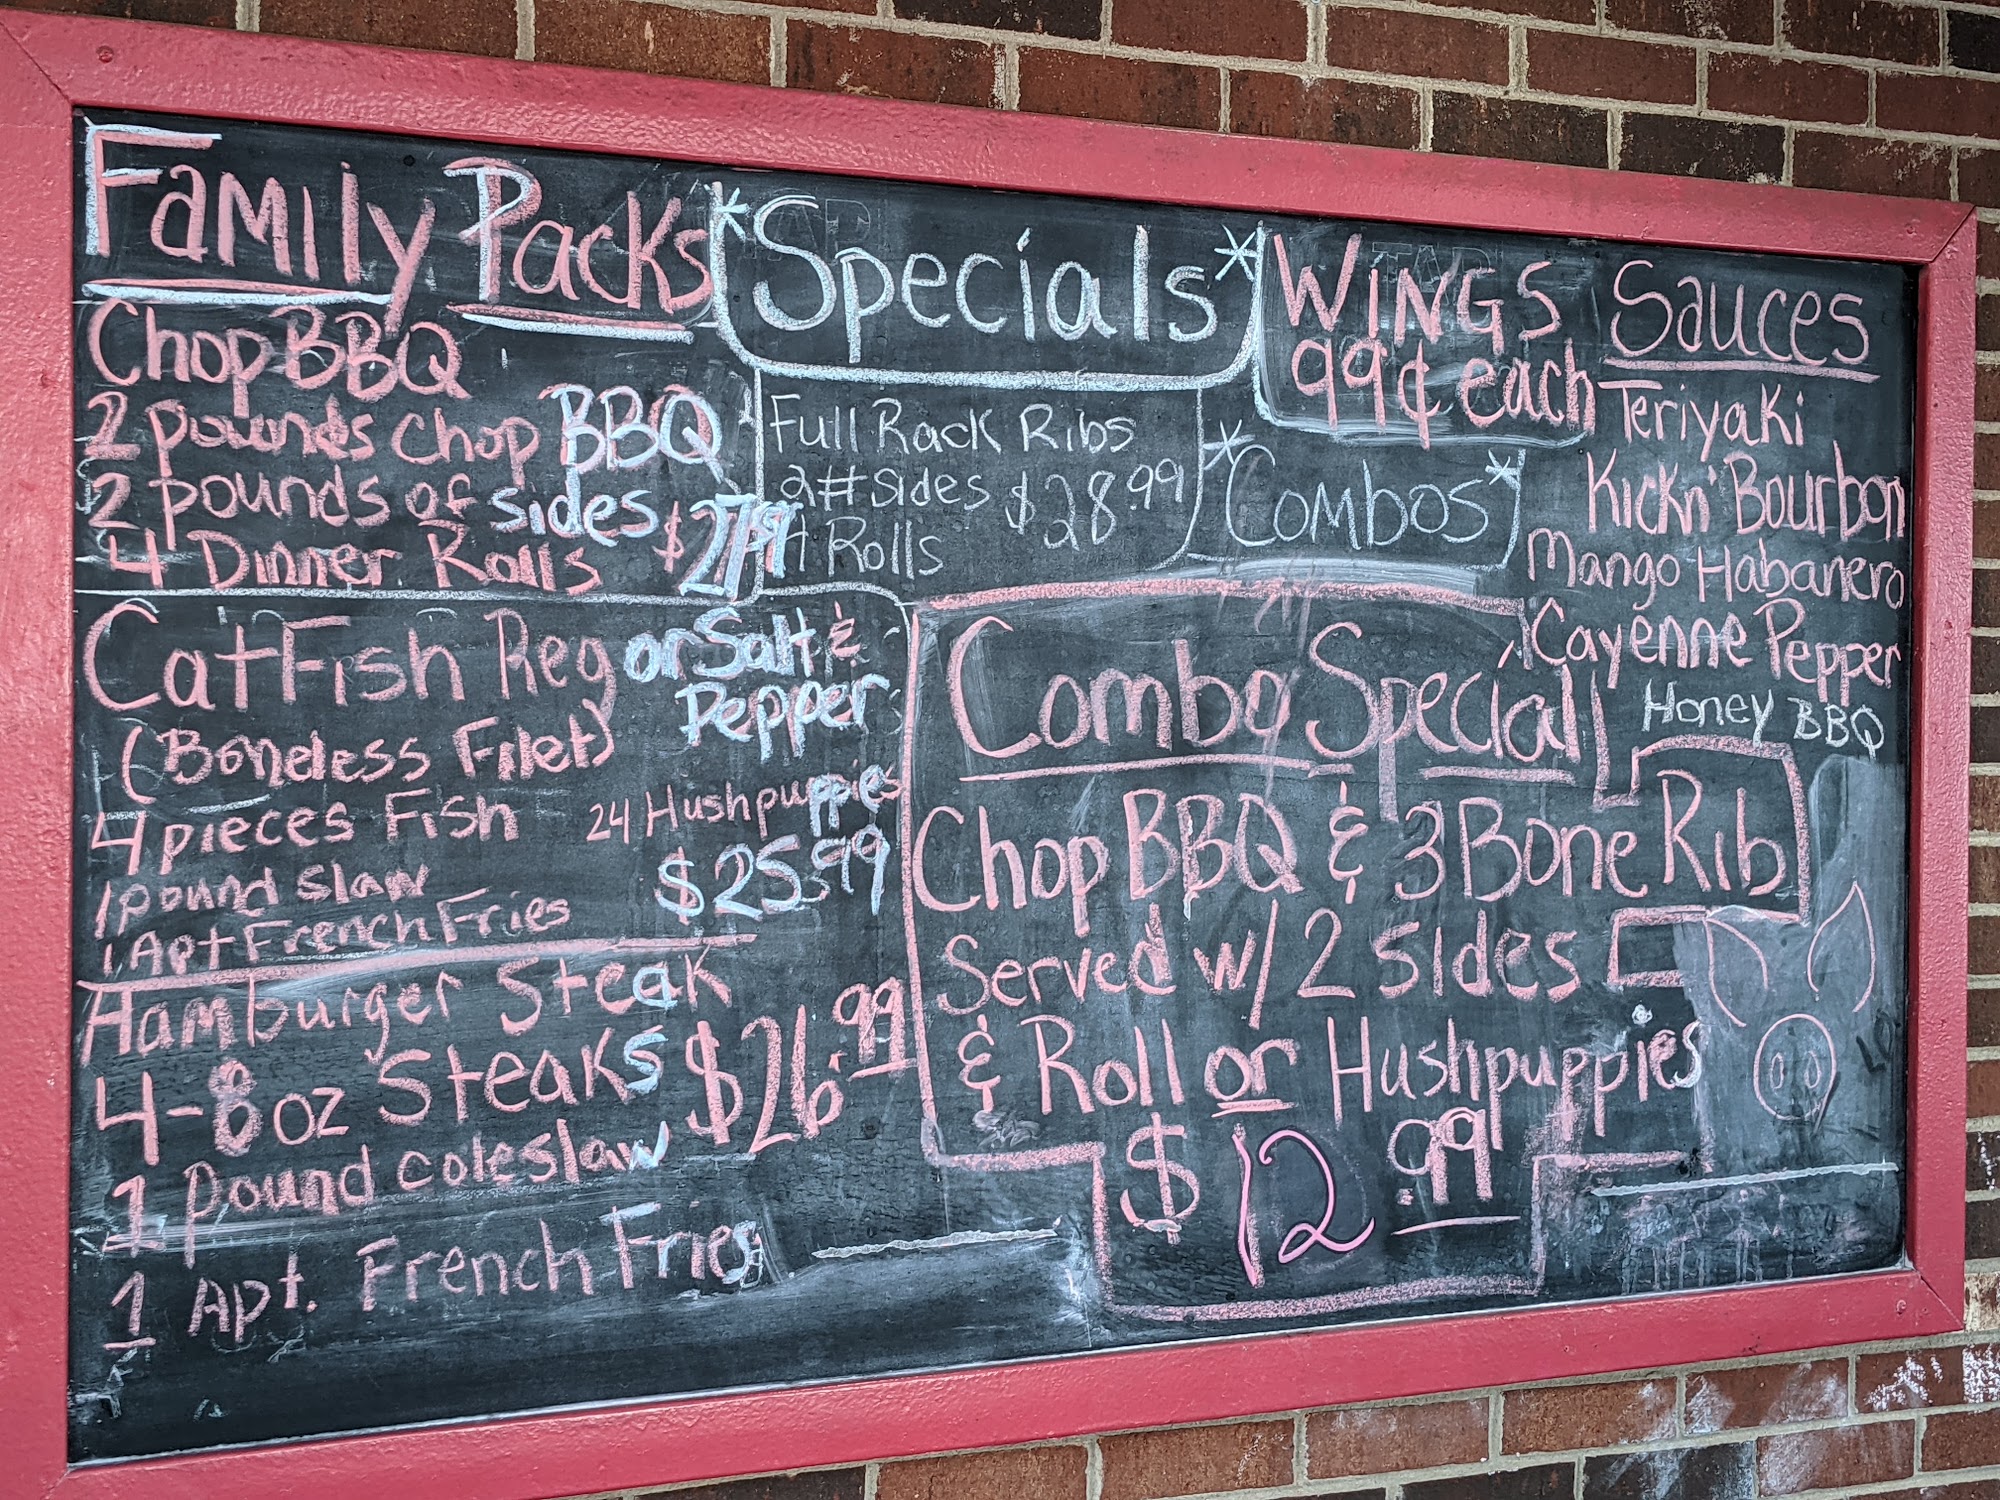 Family Packs
Chop BBQ
2 pounds chop BBQ
2 pounds of sides
4 Dinner Rolls $27.99
CatFish Reg or Salt &
Pepper
(Boneless Filet)
4 pieces Fish 24 Hushpuppies
1 pound slaw $25.99
1 Apt French Fries
Hamburger Steak
4-8oz Steaks $26.99
1 pound coleslaw
1 Apt. French Fries
*Specials*
Full Rack Ribs
2# sides $28.99
4 Rolls
WINGS
99¢ each
*Combos*
Sauces
Teriyaki
Kickn' Bourbon
Mango Habanero
Cayenne Pepper
Honey BBQ
Combo Special
Chop BBQ & 3 Bone Rib
Served w/ 2 sides
& Roll or Hushpuppies
$12.99